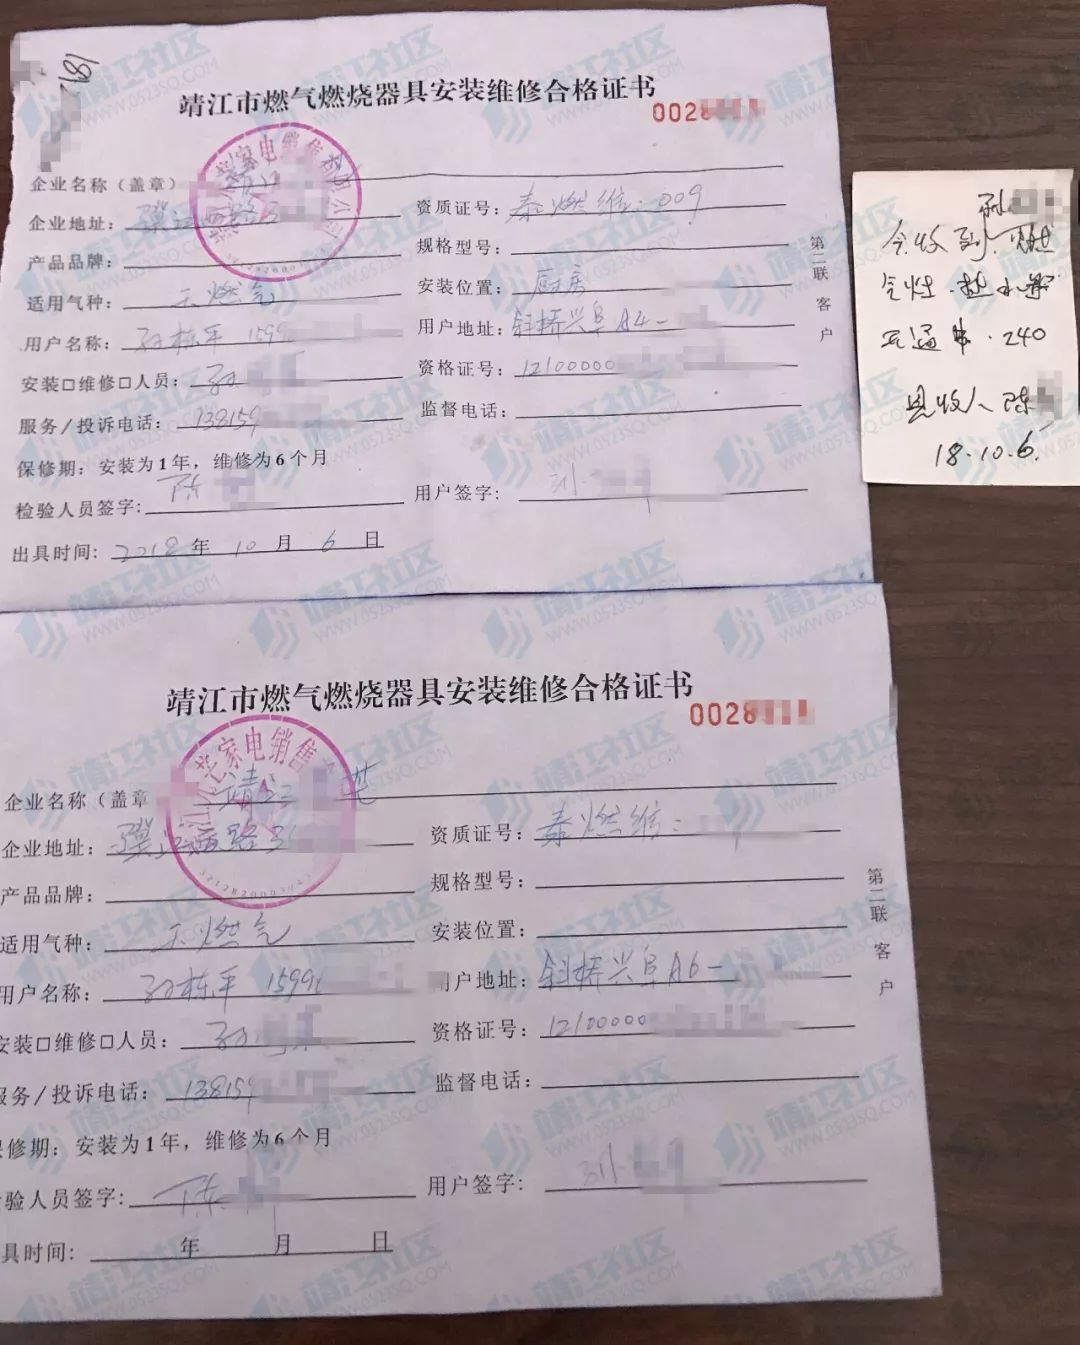 181
靖江市燃气燃烧器具安装维修合格证书
0028
企业名称（盖章）
企业地址: 骥江西路3
资质证号: 泰燃维:009
产品品牌:
规格型号:
适用气种: 天燃气
安装位置: 厨房
用户名称: 孙栋平 1599
用户地址: 斜桥兴阜A4-
安装□维修□人员: 孙
资格证号: 12100000
服务/投诉电话: 138159
监督电话:
保修期: 安装为1年，维修为6个月
检验人员签字: 陈
用户签字:
出具时间: 2018年 10月 6日
第二联 客户
家电销售有限公司
今收到 燃
气灶.热水器
开通费.240
具收人 陈
18.10.6.
靖江市燃气燃烧器具安装维修合格证书
0028
企业名称（盖章 靖江
企业地址: 骥江西路3
资质证号: 泰燃维:
产品品牌:
规格型号:
适用气种: 天燃气
安装位置:
用户名称: 孙栋平 1599
户地址: 斜桥兴阜A6-
安装□维修□人员: 孙
资格证号: 12100000
服务/投诉电话: 138159
监督电话:
保修期: 安装为1年，维修为6个月
验人员签字: 陈
用户签字:
具时间: 年 月 日
第二联 客户
家电销售
靖江社区
WWW.0523SQ.COM